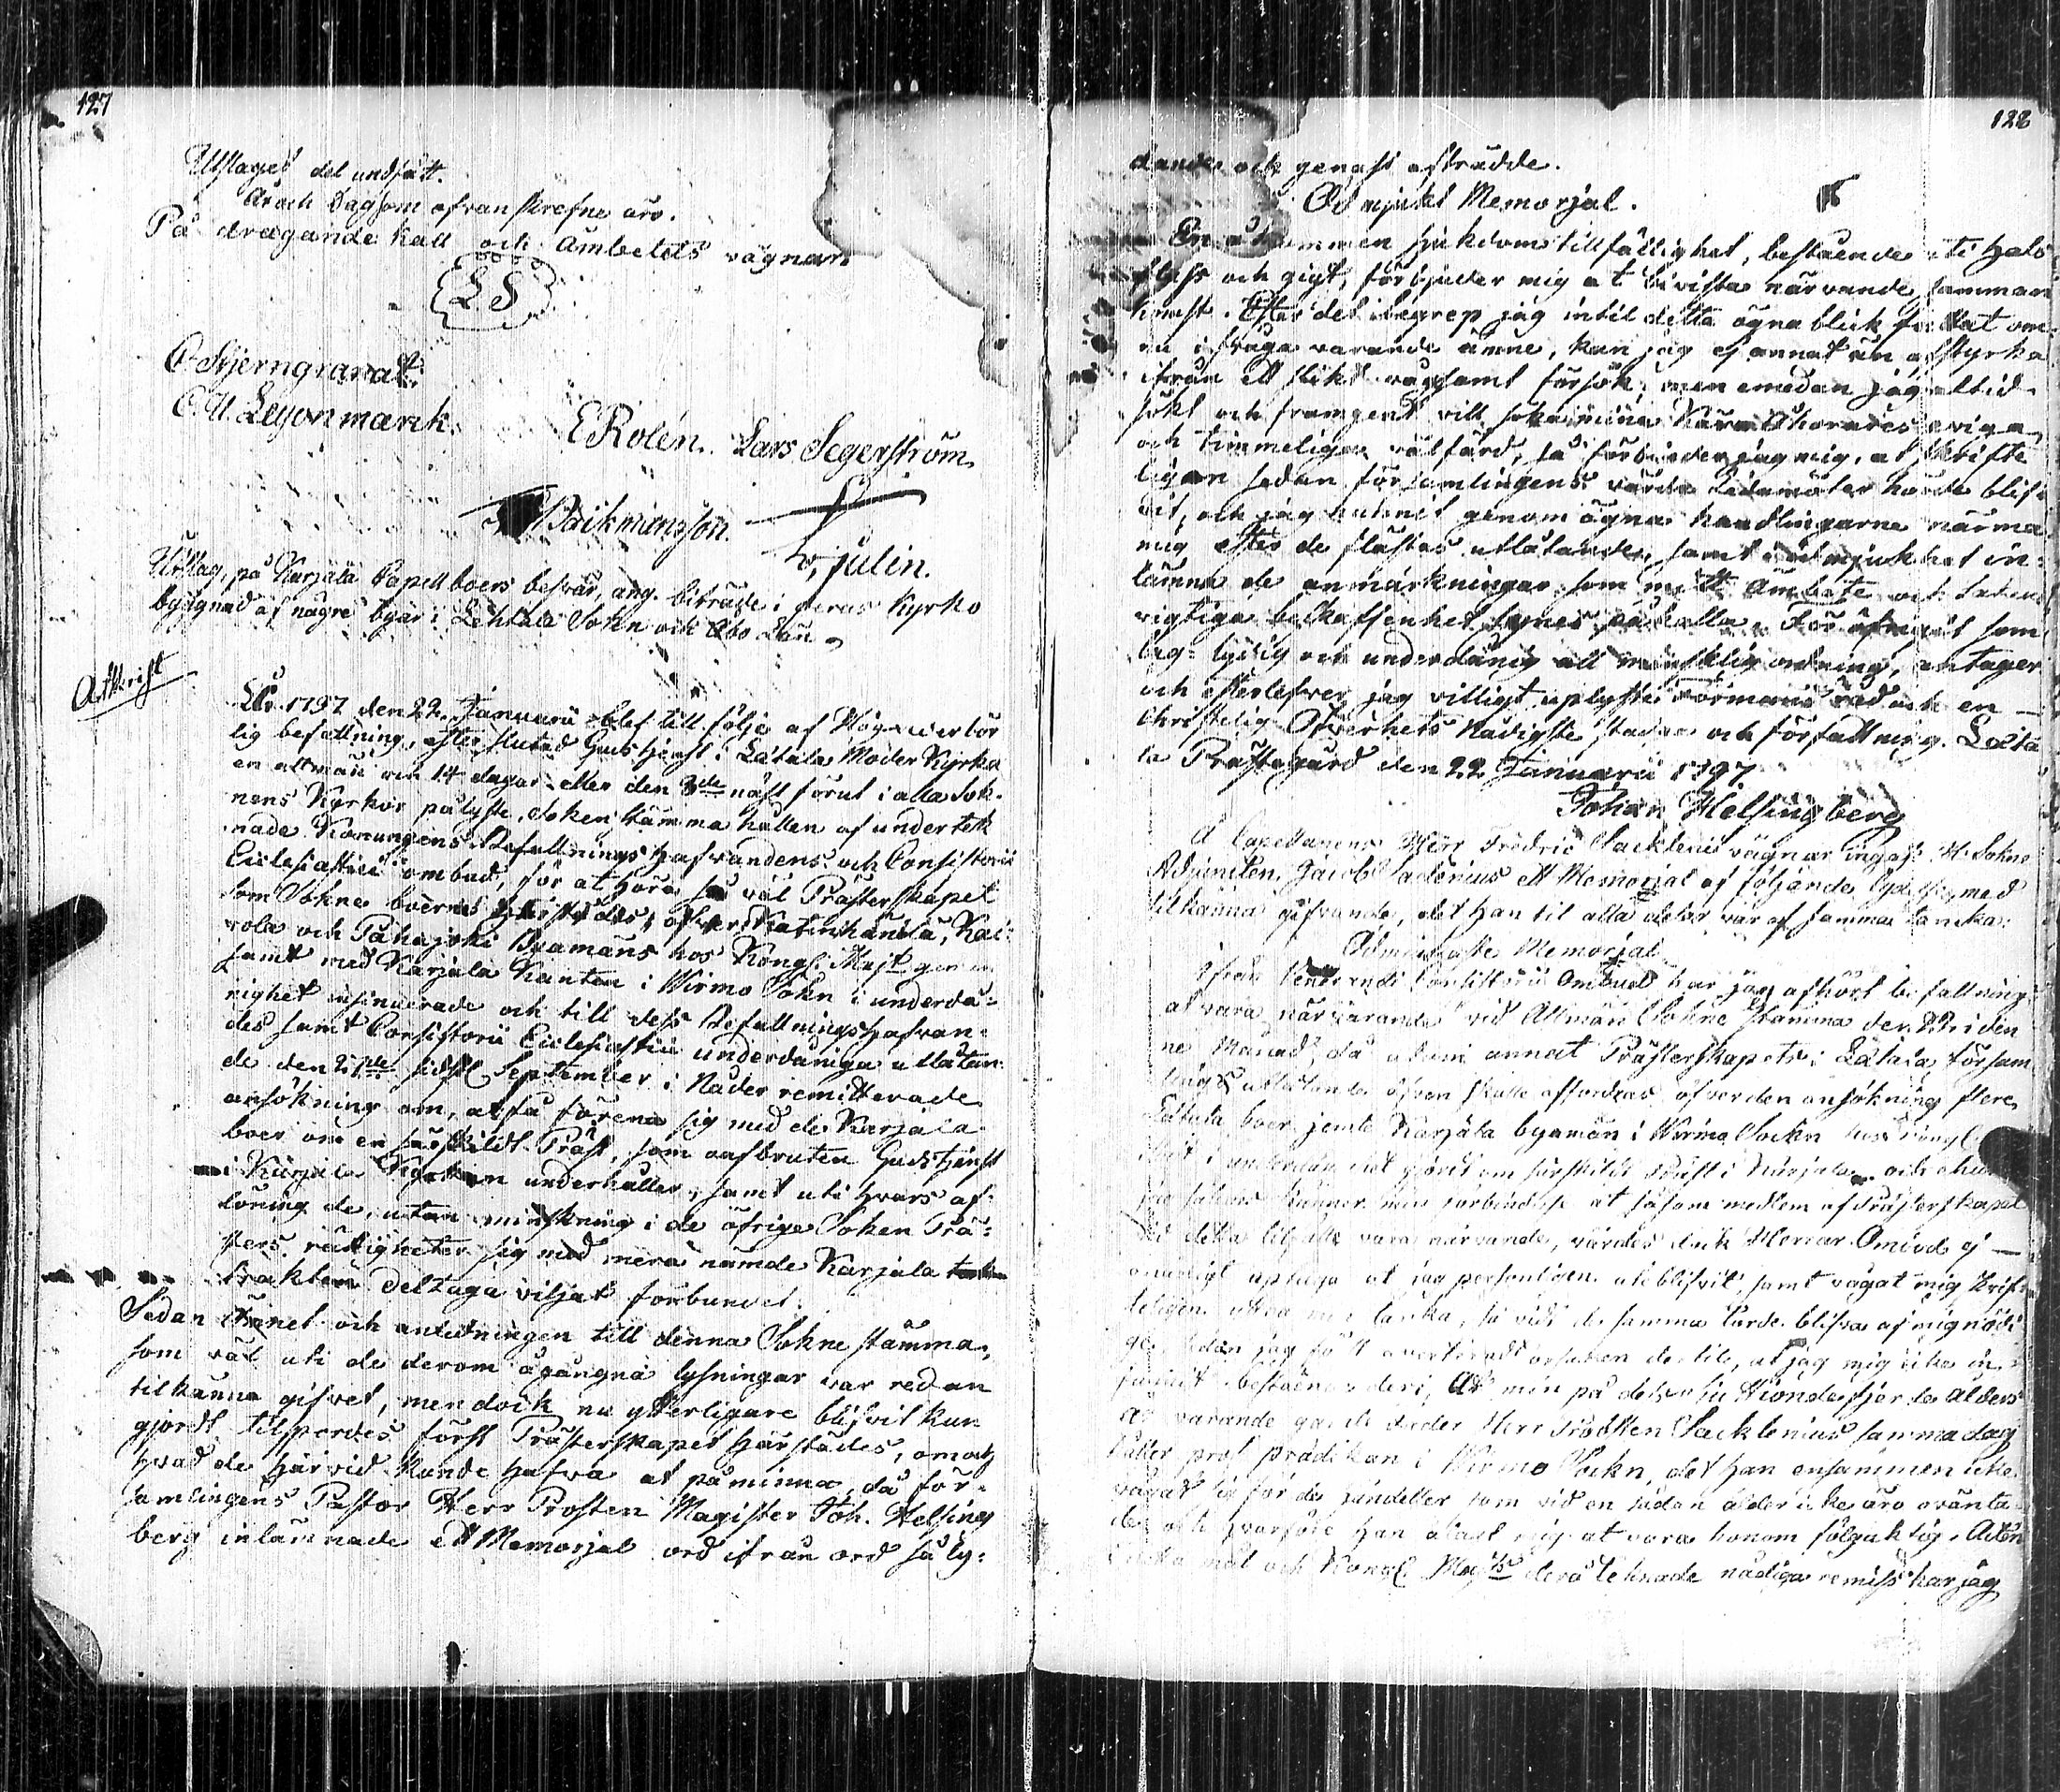 127
Utslaget del undfått.
År och Dag som ofvanskrefne äro.
På dragande kall och Ämbetets vägnar
LS
C Stjerngranat.
C. U. Leyonmarck.
E Rolén. Lars Segerström
Backmansson.
Julin.
Utslag, på Karjala Capellboers besvär, ang. biträde i deras Kyrko
byggnad af någre byar i Lehtala Sokn och Åbo Län
Afskrift
År 1797 den 22 Januarii blef till följe af Högvederbör
lig befallning, efter slutad Gudstjenst i Letala Moder Kyrka
en allmän om 14 dagar eller den 8de näst förut i alla Sok-
nens Kyrkor pålyste Soken stämma hållen af underteck
nade Konungens Befallningshafvandens och Consistorii
Ecclesiastici ombud, för at höra så väl Prästerskapet
som Sokne boernes härstädes, öfver Katinhändä, Kai-
vola och Pahajoki Byamäns hos Kongl. Majt gemen
samt med Karjala Kanten i Wirmo Sokn i underdå-
nighet insinuerade och till dess Befallningshafvan-
des samt Consistorii Ecclesiastici underdåniga utlåtan
de den 21de sidstl. September i Nåder remitterade
ansökning om, at få förena sig med de Karjala
boer om en särskildt Präst, som oafbruten Gudstjenst
i Karjala Kyrkan underhåller, samt uti hvars af-
löning de, utan minskning i de öfrige Soken Prä-
sters rättigheter sig med mera nämde Karjala
trakten deltaga viljat förbundet.
Sedan ämnet och anledningen till denna Sokne stämma,
som väl uti de derom ågångna lysningar var redan
tilkänna gifvet, men dock nu ytterligare blifvit kun
gjordt tilspordes först Prästerskapet härstädes, om at
hvad de härvid kunde hafva at påminna, då för-
samlingens Pastor Herr Prosten Magister Joh. Helsing
berg inlämnade ett Memorjal ord ifrån ord så ly-
128
dande och genast afträdde.
Ödmjukt Memorjal.
En påkommen sjukdoms tillfällighet, bestående uti hals
fluss och gigt, förbjuder mig at bivista närvande samman
komst. Efter det begrep jag intil detta ögnablick fattat om
nu i fråga varande ämne, kan jag ej annat än afstyrka
ifrån ett slikt vågsamt försök; men emedan jag altid
sökt och framgent vill söka mina Kära Åhorares eviga
och timmeliga välfärd, så förbinder jag mig, at skrifte
ligen sedan församlingens värda Ledamöter hörde blif-
vit, och jag hunnit genom ögna handlingarne närma
mig efter de flästas utlåtande, samt i ödmjukhet in-
lämna de anmärkningar som mitt Ämbete och saken
vigtiga beskaffenhet synes påkalla. För öfrigt som
lag-lydig och underdånig all mänsklig ordning, antager
och efterlefver jag villigt uplyste Förmäns råd och en
Christelig Öfverhets Nådigste stadgar och författning. Leta
la Prästegård den 22 Januarii 1797
Johan Helsingberg
Å Capellanens Herr Fredric Sacklenii vägnar ingaf H. Sokne
Adjuncten Jacob Sadenius ett Memorjal af följande lydelse, med
tilkänna gifvande, det han til alla delar var af samma tancka:
Ödmjukaste Memorjal
Ifrån Venerandi Consistorii Ombud har jag afhört befallning
at vara närvarande vid Allmän Sokne stämma den 22 i den
ne Månad, då utom annat Prästerskapets i Letala försam
lings utlåtande äfven skulle affordras öfver den ansökning flere
Letala boer jemte Karjala byamän i Wirmo Sockn hos Kongl.
Majt i underdånighet gjordt om särskildt Präst i Karjala och ehuru
jag såleds känner min förbindelse at såsom medlem af Prästerskapet
vid detta tilfälle vara närvande, värdes dock Herrar Ombud ej
onådigt uptaga at jag personligen uteblifvit, samt vågat mig skrif
teligen yttra min tancka, så vida de samma lärde blifva af mig nödi
ge, sedan jag fått overtyradt orsaken dertil, at jag mig icke in
funnit bestående deri, At min på det sjuttionde fjerde ålders
år varande goda Fader Herr Prosten Sacklenius samma dag
håller prof prädikan i Wirmo Sockn, det han ensammen icke
vågat sig för de händelser som vid en sådan ålder icke äro ovänta
de och hvarföre han ålagt mig at vara honom följaktig. Allén
och Kongl. Majts derå teknade nådiga remiss har jag